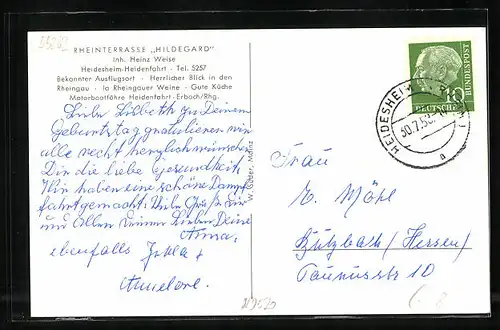 RHEINTERRASSE „HILDEGARD"
Inh. Heinz Weise
Heidesheim-Heidenfahrt - Tel. 5257
Bekannter Ausflugsort - Herrlicher Blick in den
Rheingau - Ia Rheingauer Weine - Gute Küche
Motorbootfähre Heidenfahrt-Erbach/Rhg.
Liebe Lisbeth zu Deinem
Geburtstag gratulieren wir
alle recht herzlich wünschen
Dir die liebe Gesundheit
Wir haben eine schöne Dampf
fahrt gemacht. Viele Grüße Dir
und Allen Deinen Lieben Deine
Anna,
ebenfalls
Anneliese.
Mainz
10
DEUTSCHE
BUNDESPOST
HEIDESHEIM
30.7.58
a
Frau
E. Möhl
Butzbach (Hessen)
Taunusstr 10